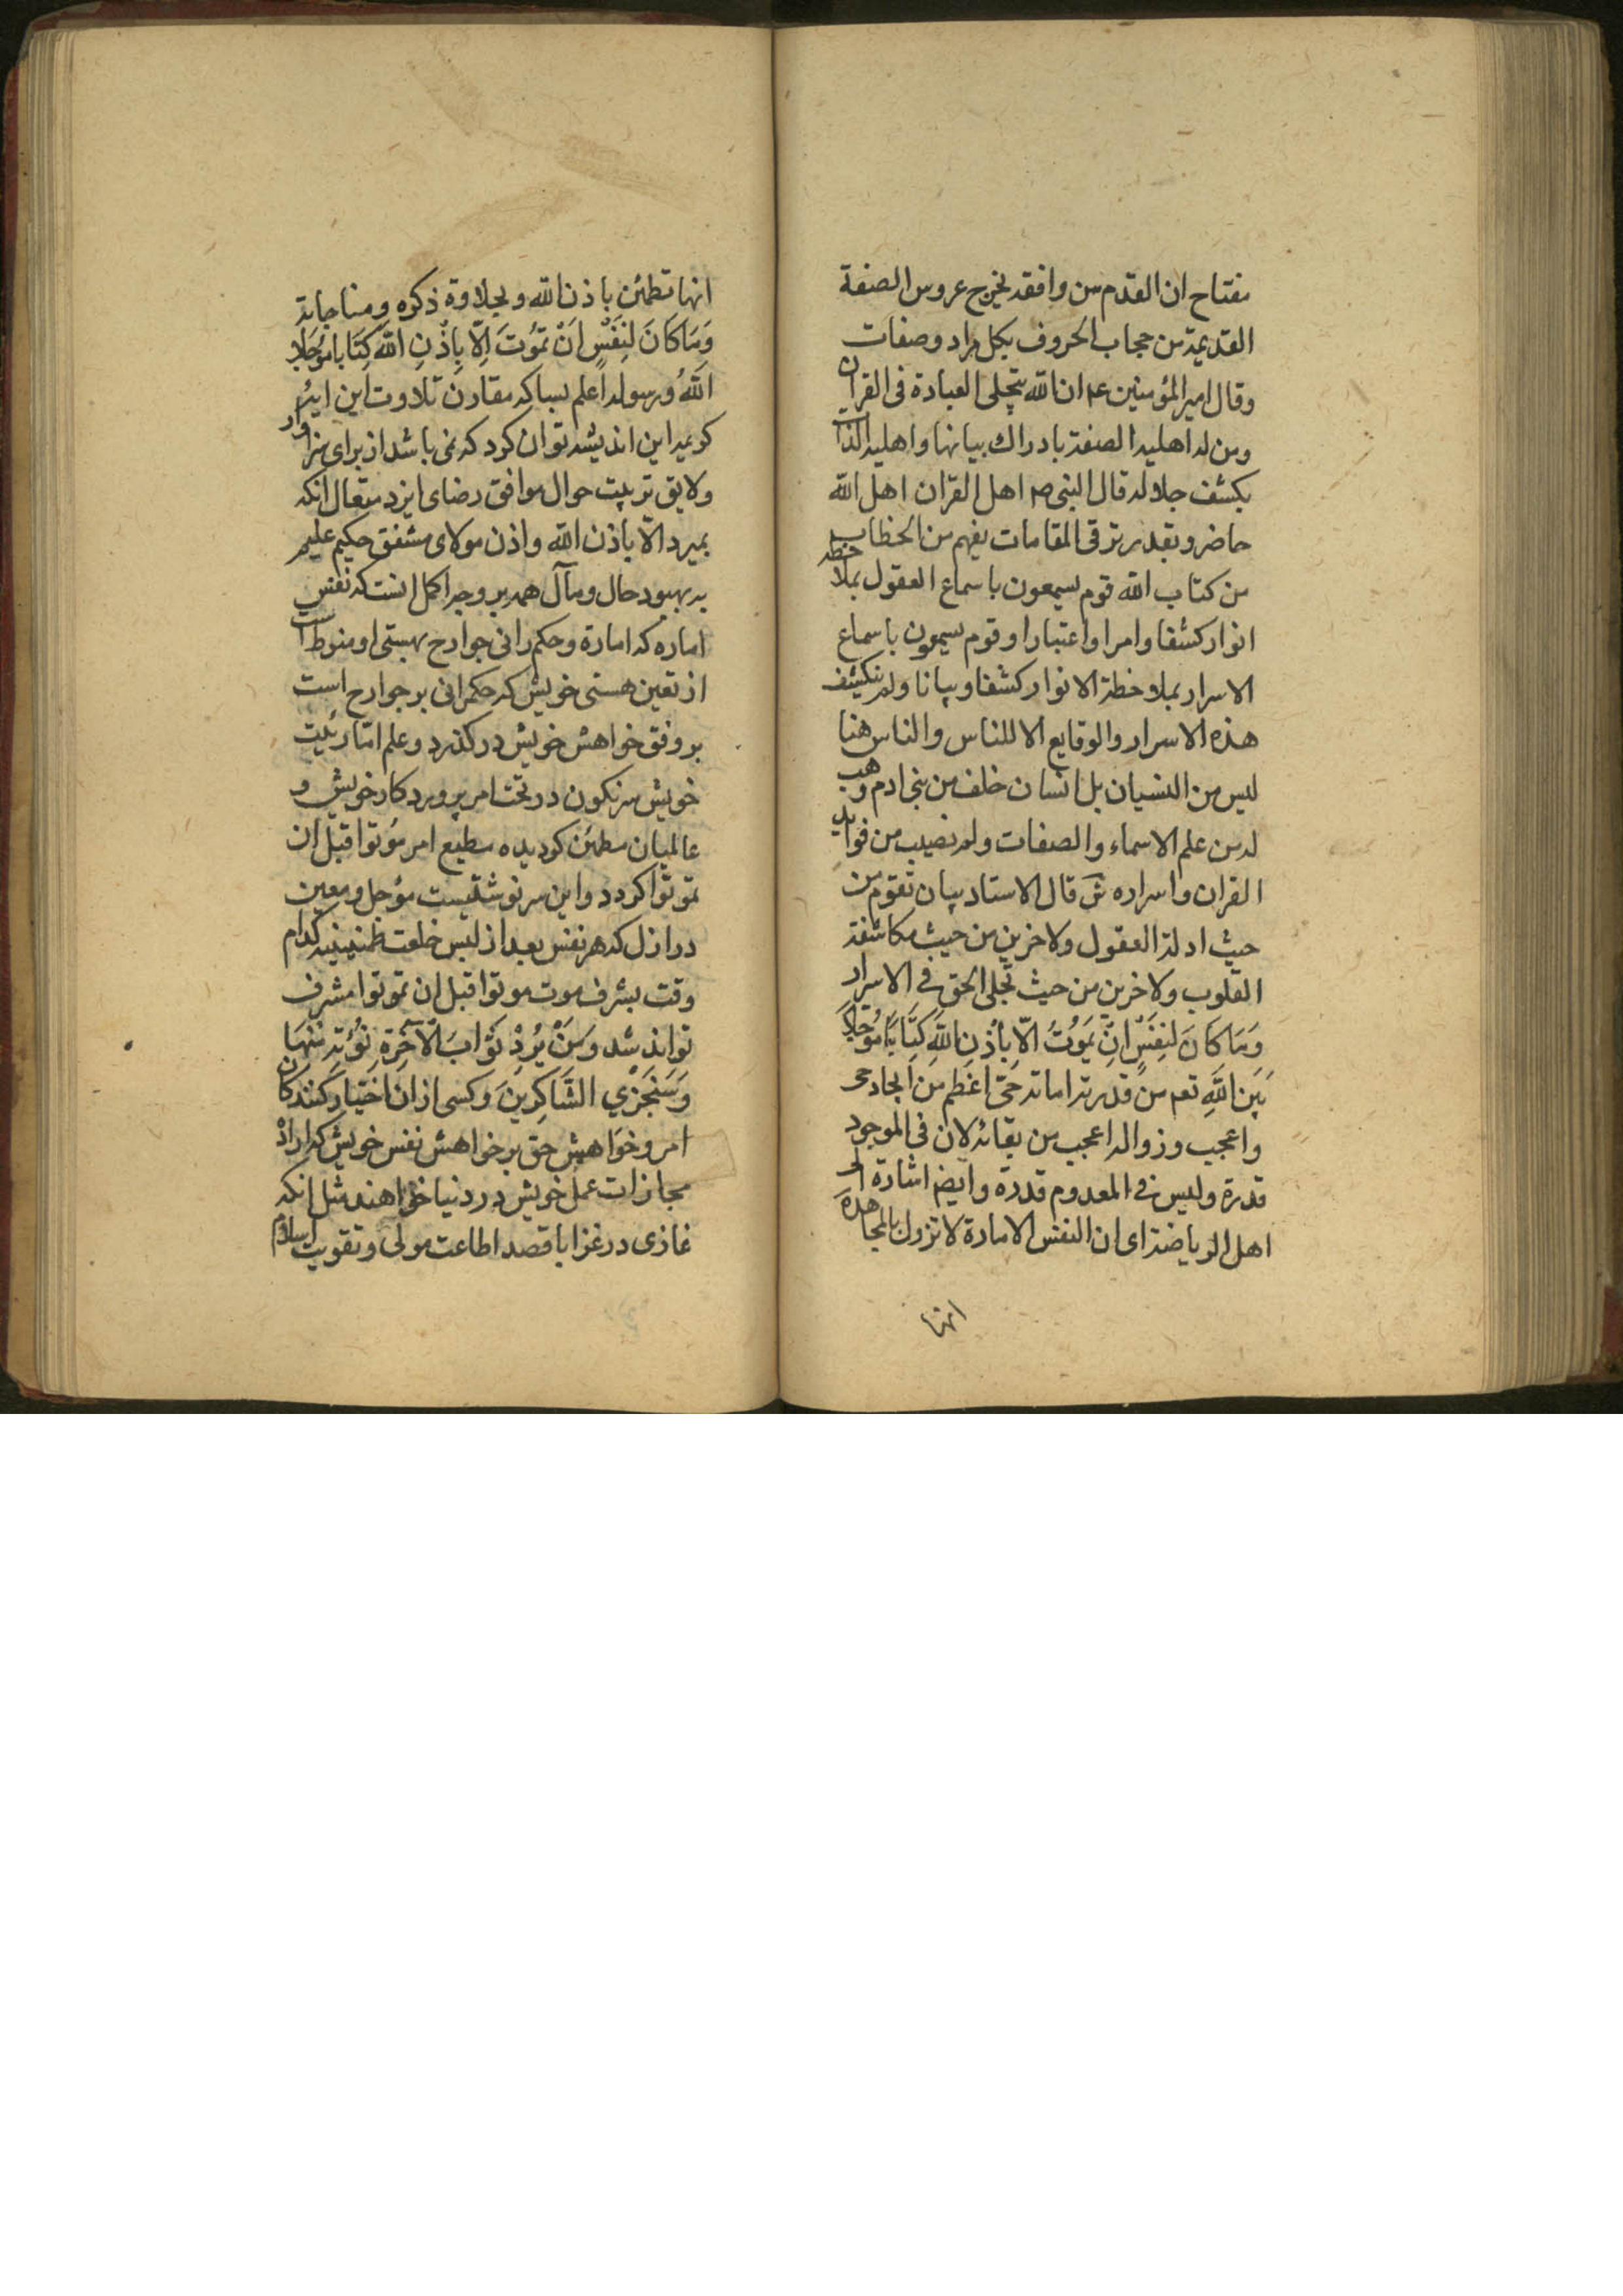 مفتاح ان القدم من وافقه لخرج عروس الصفة
القديمة من حجاب الحروف بكل مراد وصفات
وقال امير المؤمنين ع م ان الله يتجلى العباده فى القران
ومن له اهلية الصفة بادراك بيانها واهلية الذات
بكشف جلاله قال النبى ص اهل القران اهل الله
حاضر وبقدر ترقى المقامات يفهم من الخطاب
من كتاب الله قوم يسمعون باسماع العقول بملاحظه
انوار كشفا وامرا واعتبارا وقوم يسمون باسماع
الاسرار بملاخطة الانوار كشفا وبيانا ولم ينكشف
هذه الاسرار والوقايع الا للناس والناس هنا
ليس من النسيان بل انسان خلف من بنى ادم وهب
له من علم الاسماء والصفات وله نصيب من فوايد
القران واسراره ش قال الاستاد بيان تقوم من
حيث ادلة العقول ولاخرين من حيث مكاشفة
القلوب ولاخرين من حيث تجلى الحق فى الاسرار
وَمَا كَانَ لِنَفْسٍ انْ يَمَوُتُ الّا بِاُذْنِ اللّهِ كِتَابًا مُؤجَلاً
بَين اللّهِ تعم من قدرته اماته حَتى اعظم من ايجاد حى
واعجب وزواله اعجب من بقائه لان فى الموجود
قدرة وليس فى المعدوم قدرة وايضا اشارة الى
اهل الرياضة اى ان النفس الامادة لا تزول بالمجاهدة
انها
انها تطمئن باذن الله وبحلاوة ذكره ومناجاته
وَمَا كَانَ لِنَفْسٍ اَنْ تَمُوتَ اِلّا بِاِذْنِ اللّهِ كِتَابا مؤجَلا
اللّهُ ورسوله اعلم بساكه مقارن تلاوت اين ايهٔ
كريمه اين انديشه توان كرد كه نمى باشد از براى سزاوار
ولايق تربيت حوال موافق رضاى ايزد متعال انكه
بميرد الّا باذن الله واذن مولاى مشفق حكيم عليم
به بهبود حال ومآل همه بر وجه اكمل انست كه نفس
اماره كه امارة وحكم رانى جوارح بهستى او منوط است
از تعين هستى خويش كه حكمرانى بر جوارح است
بر وفق خواهش خويش در كذرد وعلم امّاريّت
خويش سرنكون در تحت امر پرورد كار خويش و
عالميان مطمئن كرديده مطيع امر مؤتوا قبل ان
تموتوا كردد واين سر نوشتيست مؤجل ومعين
در ازل كه هر نفس بعد از لبس خلعت طمنينيه كدام
وقت بشرف موت موتوا قبل ان تموتوا مشرف
تواند شد وَمَنْ يُرِدْ ثَوَابَ الْاخِرَةِ نُؤْتِهِ مِنْهَا
وَسَنَجْزِي الشَّاكِرِينَ وكسى از ان اختيار كنندكان
امر وخواهش حق بر خواهش نفس خويش كه ارادْ
مجازات عمل خويش در دنيا خواهند مثل انكه
غازى در غزا با قصد اطاعت مولى وتقويت اسلام